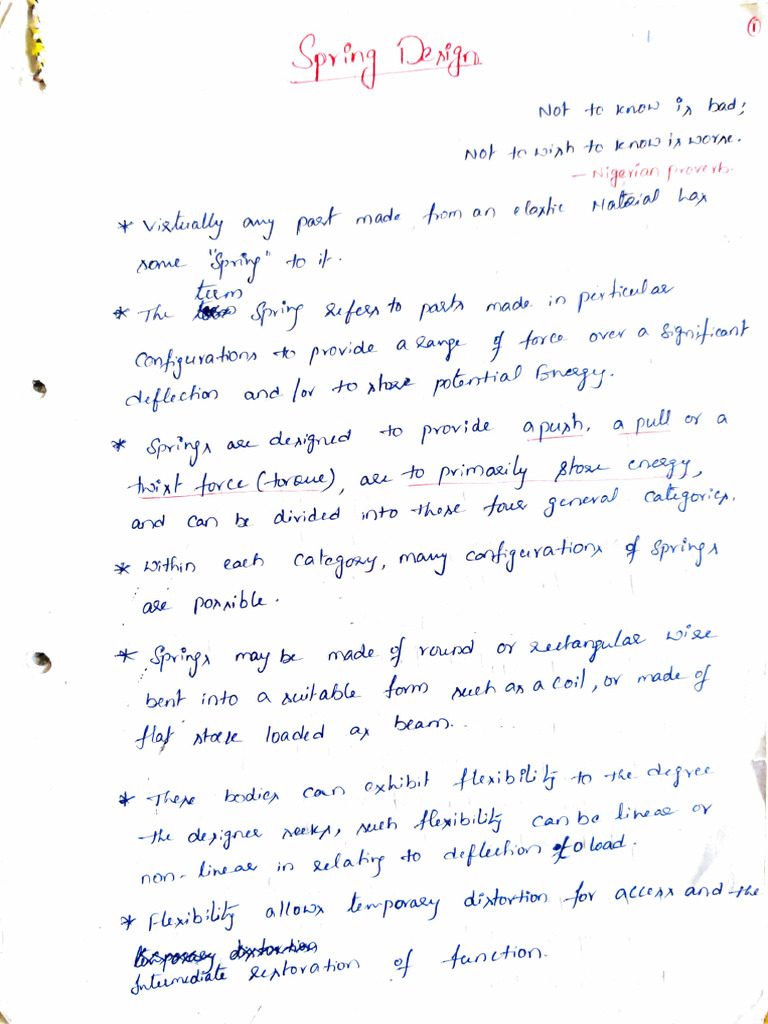 1
Spring Design
Not to know is bad;
Not to wish to know is worse.
- Nigerian proverb.
* Virtually any part made from an elastic Material has
some "Spring" to it.
term
* The Spring refers to parts made in perticular
configurations to provide a range of force over a significant
deflection and /or to store potential Energy.
* Springs are designed to provide a push, a pull or a
twist force (torque), are to primarily store energy,
and can be divided into these four general categories.
* within each category, many configurations of springs
are possible.
* Springs may be made of round or rectangular wire
bent into a suitable form such as a coil, or made of
flat stock loaded as beam.
* These bodies can exhibit flexibility to the degree
the designer seeks, such flexibility can be linear or
non-linear in relating to deflection to load.
* Flexibility allows temporary distortion for access and the
temporary distortion
Intermediate restoration of function.